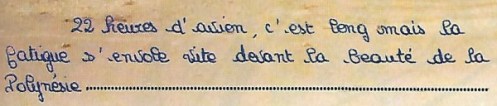 22 heures d'avion, c'est long mais la
fatigue s'envole vite devant la beauté de la
Polynésie........................................................................